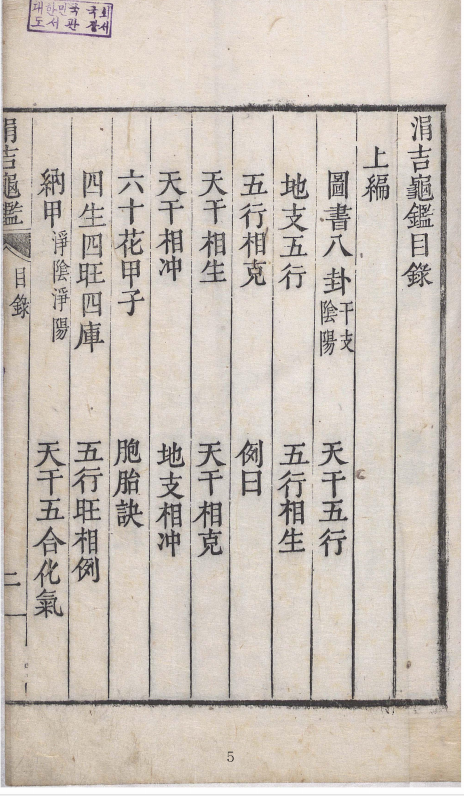 대한민국국회
도서관장서
涓吉龜鑑目錄
上編
圖書八卦 干支陰陽 天干五行
地支五行 五行相生
五行相克 例曰
天干相生 天干相克
天干相冲 地支相冲
六十花甲子 胞胎訣
四生四旺四庫 五行旺相例
納甲 淨陰淨陽 天干五合化氣
涓吉龜鑑 目錄 二一
5